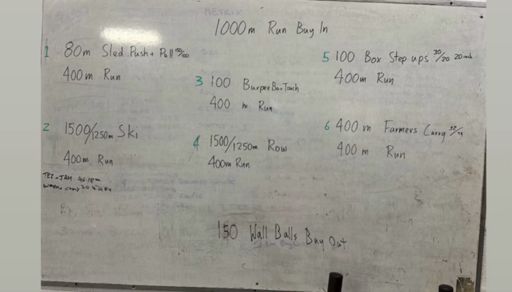 1000m Run Buy In
1 80m Sled Push + Pull
400m Run
2 1500/1250m Ski
400m Run
3 100 Burpee Box Touch
400 m Run
4 1500/1250m Row
400m Run
5 100 Box Step ups 30/20 20inch
400m Run
6 400 m Farmers Carry
400 m Run
150 Wall Balls Buy Out